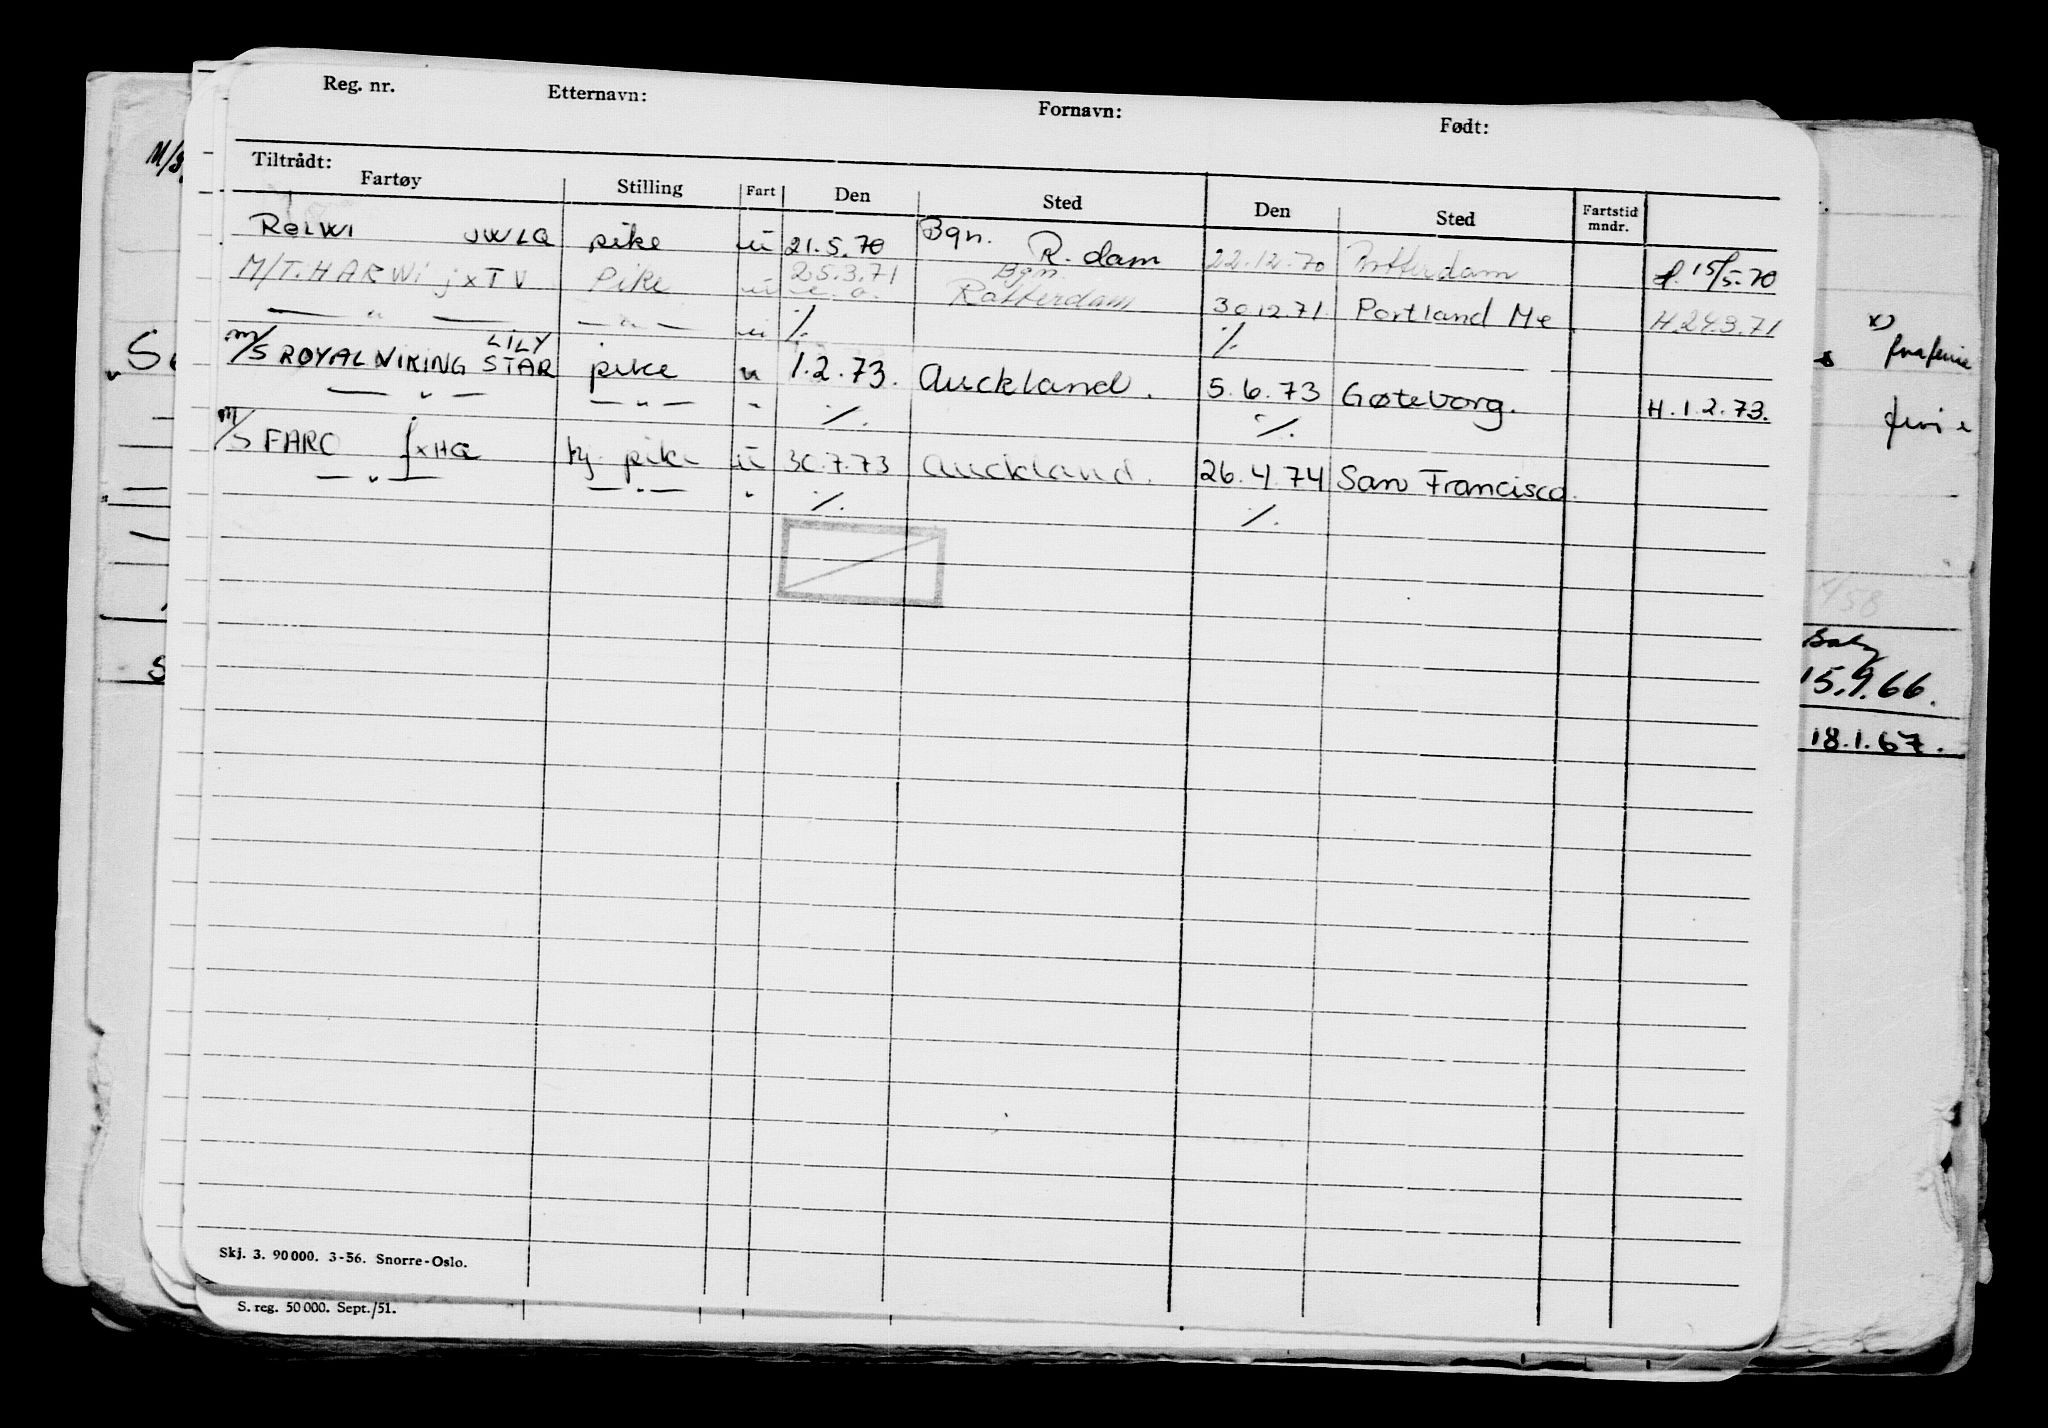 Reg. nr. Etternavn: Fornavn: Født:
Tiltrådt:
Fartøy Stilling Fart Den Sted Den Sted Fartstid mndr.
ROLWI JWLQ pike u 21.5.70 Bgn. R.dam 22.12.70 Rotterdam 15/5.70
M/T. HARWI jxTV Pike u 25.3.71 Bgn. Rotterdam 30.12.71 Portland Me H.24.3.71
— " — — " — ./. ./.
M/S ROYAL VIKING STAR LILY pike u 1.2.73. Auckland. 5.6.73 Gøteborg. H.1.2.73.
— " — — " — " ./. ./.
M/S FARO JXHQ pike u 30.7.73 Auckland. 26.4.74 San Francisco.
— " — — " — " ./. ./.
Skj. 3. 90000. 3-56. Snorre-Oslo.
S. reg. 50000. Sept./51.
M/S
x)
/58
15.9.66.
18.1.67.